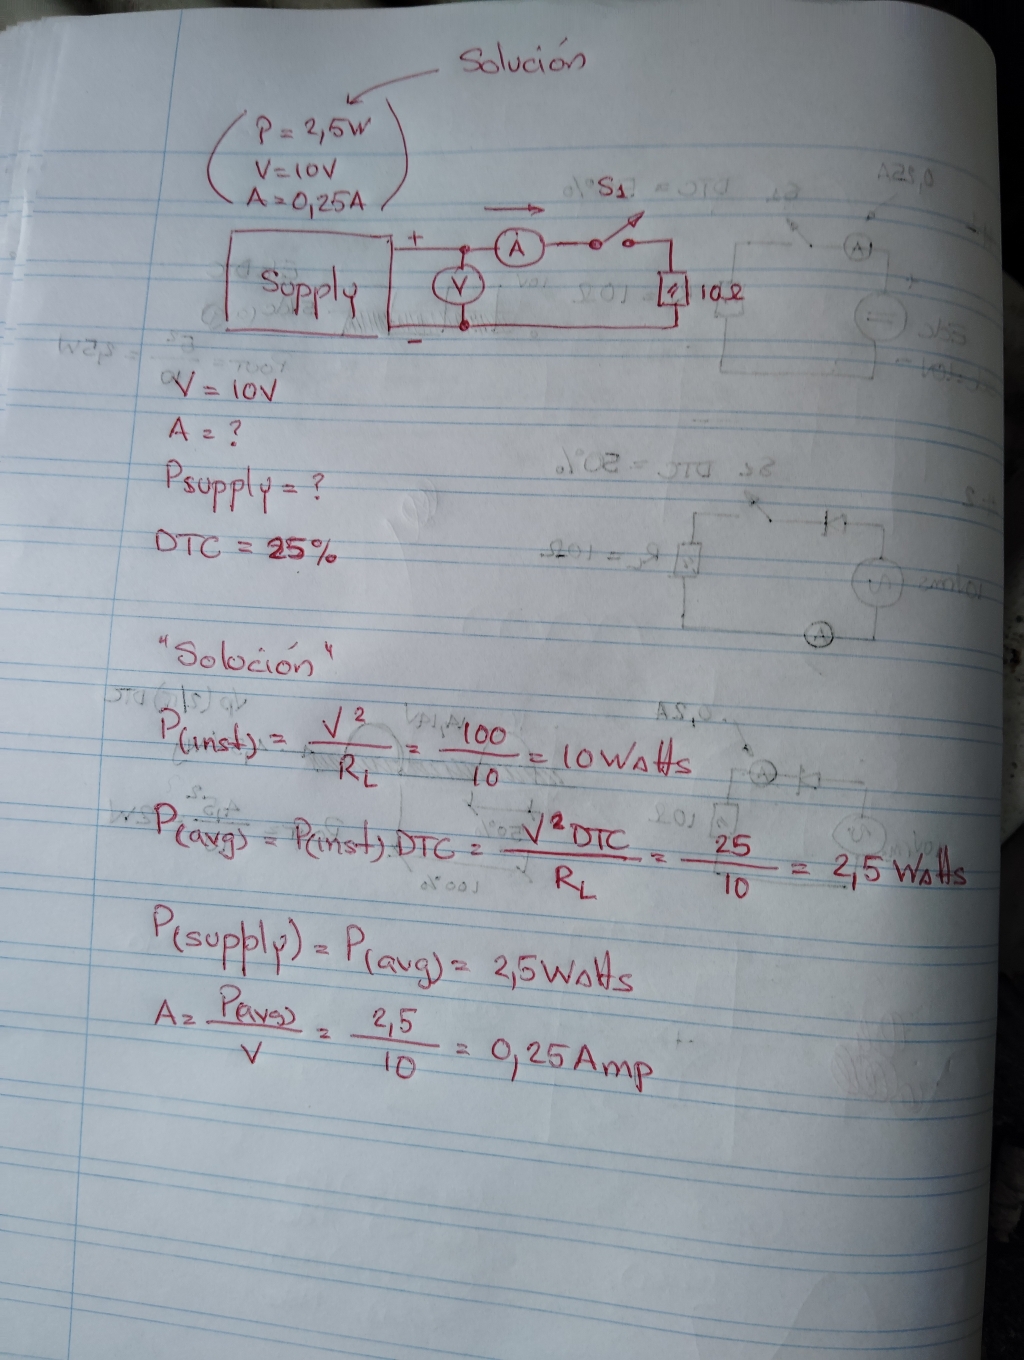 Solución
P = 2,5W
V = 10V
A = 0,25A
S1
+
A
Supply
V
10Ω
-
V = 10V
A = ?
Psupply = ?
DTC = 25%
"Solución"
P(inst) = V² / RL = 100 / 10 = 10 Watts
P(avg) = P(inst) DTC = V² DTC / RL = 25 / 10 = 2,5 Watts
P(supply) = P(avg) = 2,5 Watts
A = P(avg) / V = 2,5 / 10 = 0,25 Amp